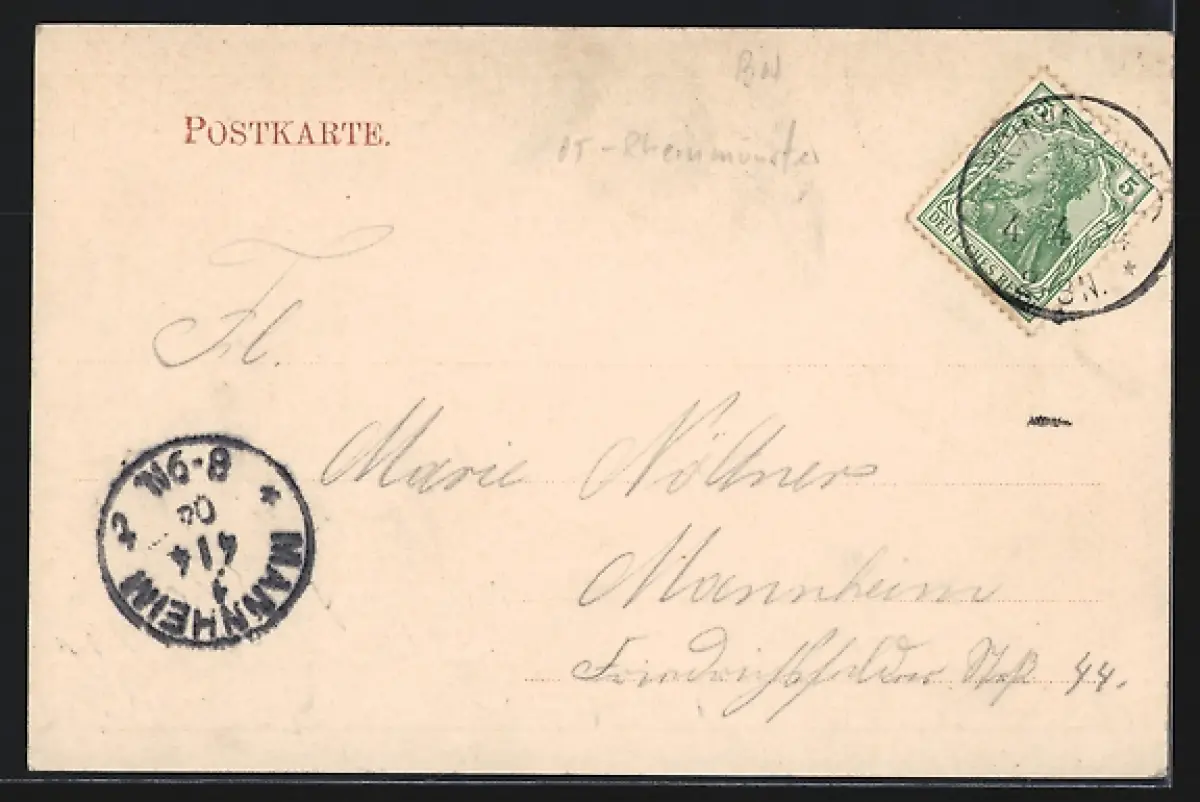 BN
POSTKARTE.
OT - Rheinmünster
5
DEUTSCHES REICH
4 4 4
8 N.
Frl.
Marie Nöltner
Mannheim
Friedrichsfelder Str 44.
MANNHEIM 2
4 4
04
8-9N.